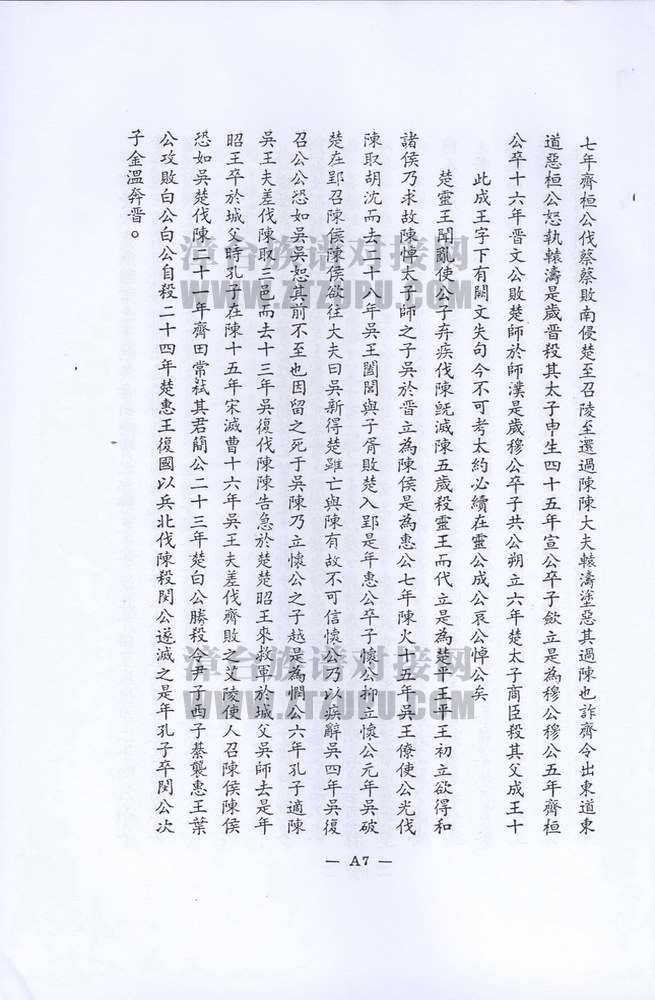 七年齊桓公伐蔡蔡敗南侵楚至召陵至還過陳陳大夫轅濤塗惡其過陳也詐齊令出東道東
道惡桓公怒執轅濤是歲晋殺其太子申生四十五年宣公卒子欵立是為穆公穆公五年齊桓
公卒十六年晋文公敗楚師於師濮是歲穆公卒子共公朔立六年楚太子商臣殺其父成王十
此成王字下有闕文失句今不可考太約必續在靈公成公哀公悼公矣
楚靈王聞亂使公子弃疾伐陳旣滅陳五歲殺靈王而代立是為楚平王平王初立欲得和
諸侯乃求故陳悼太子師之子吳於晋立為陳侯是為惠公七年陳火十五年吳王僚使公光伐
陳取胡沈而去二十八年吳王闔閭與子胥敗楚入郢是年惠公卒子懷公抑立懷公元年吳破
楚在郢召陳侯陳侯欲往大夫曰吳新得楚雖亡與陳有故不可信懷公乃以疾辭吳四年吳復
召公公恐如吳吳恕其前不至也因留之死于吳陳乃立懷公之子越是為憫公六年孔子適陳
吳王夫差伐陳取三邑而去十三年吳復伐陳陳告急於楚楚昭王來救軍於城父吳師去是年
昭王卒於城父時孔子在陳十五年宋滅曹十六年吳王夫差伐齊敗之艾陵使人召陳侯陳侯
恐如吳楚伐陳二十一年齊田常弑其君簡公二十三年楚白公勝殺令尹子西子綦襲惠王葉
公攻敗白公白公自殺二十四年楚惠王復國以兵北伐陳殺閔公遂滅之是年孔子卒閔公次
子金溫奔晋。
— A7 —
漳台族谱对接网
WWW.ZTZUPU.COM
漳台族谱对接网
WWW.ZTZUPU.COM